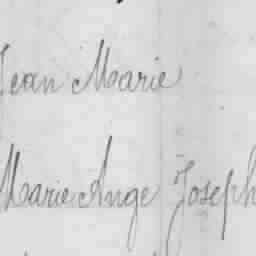 Jean Marie
Marie Ange Joseph